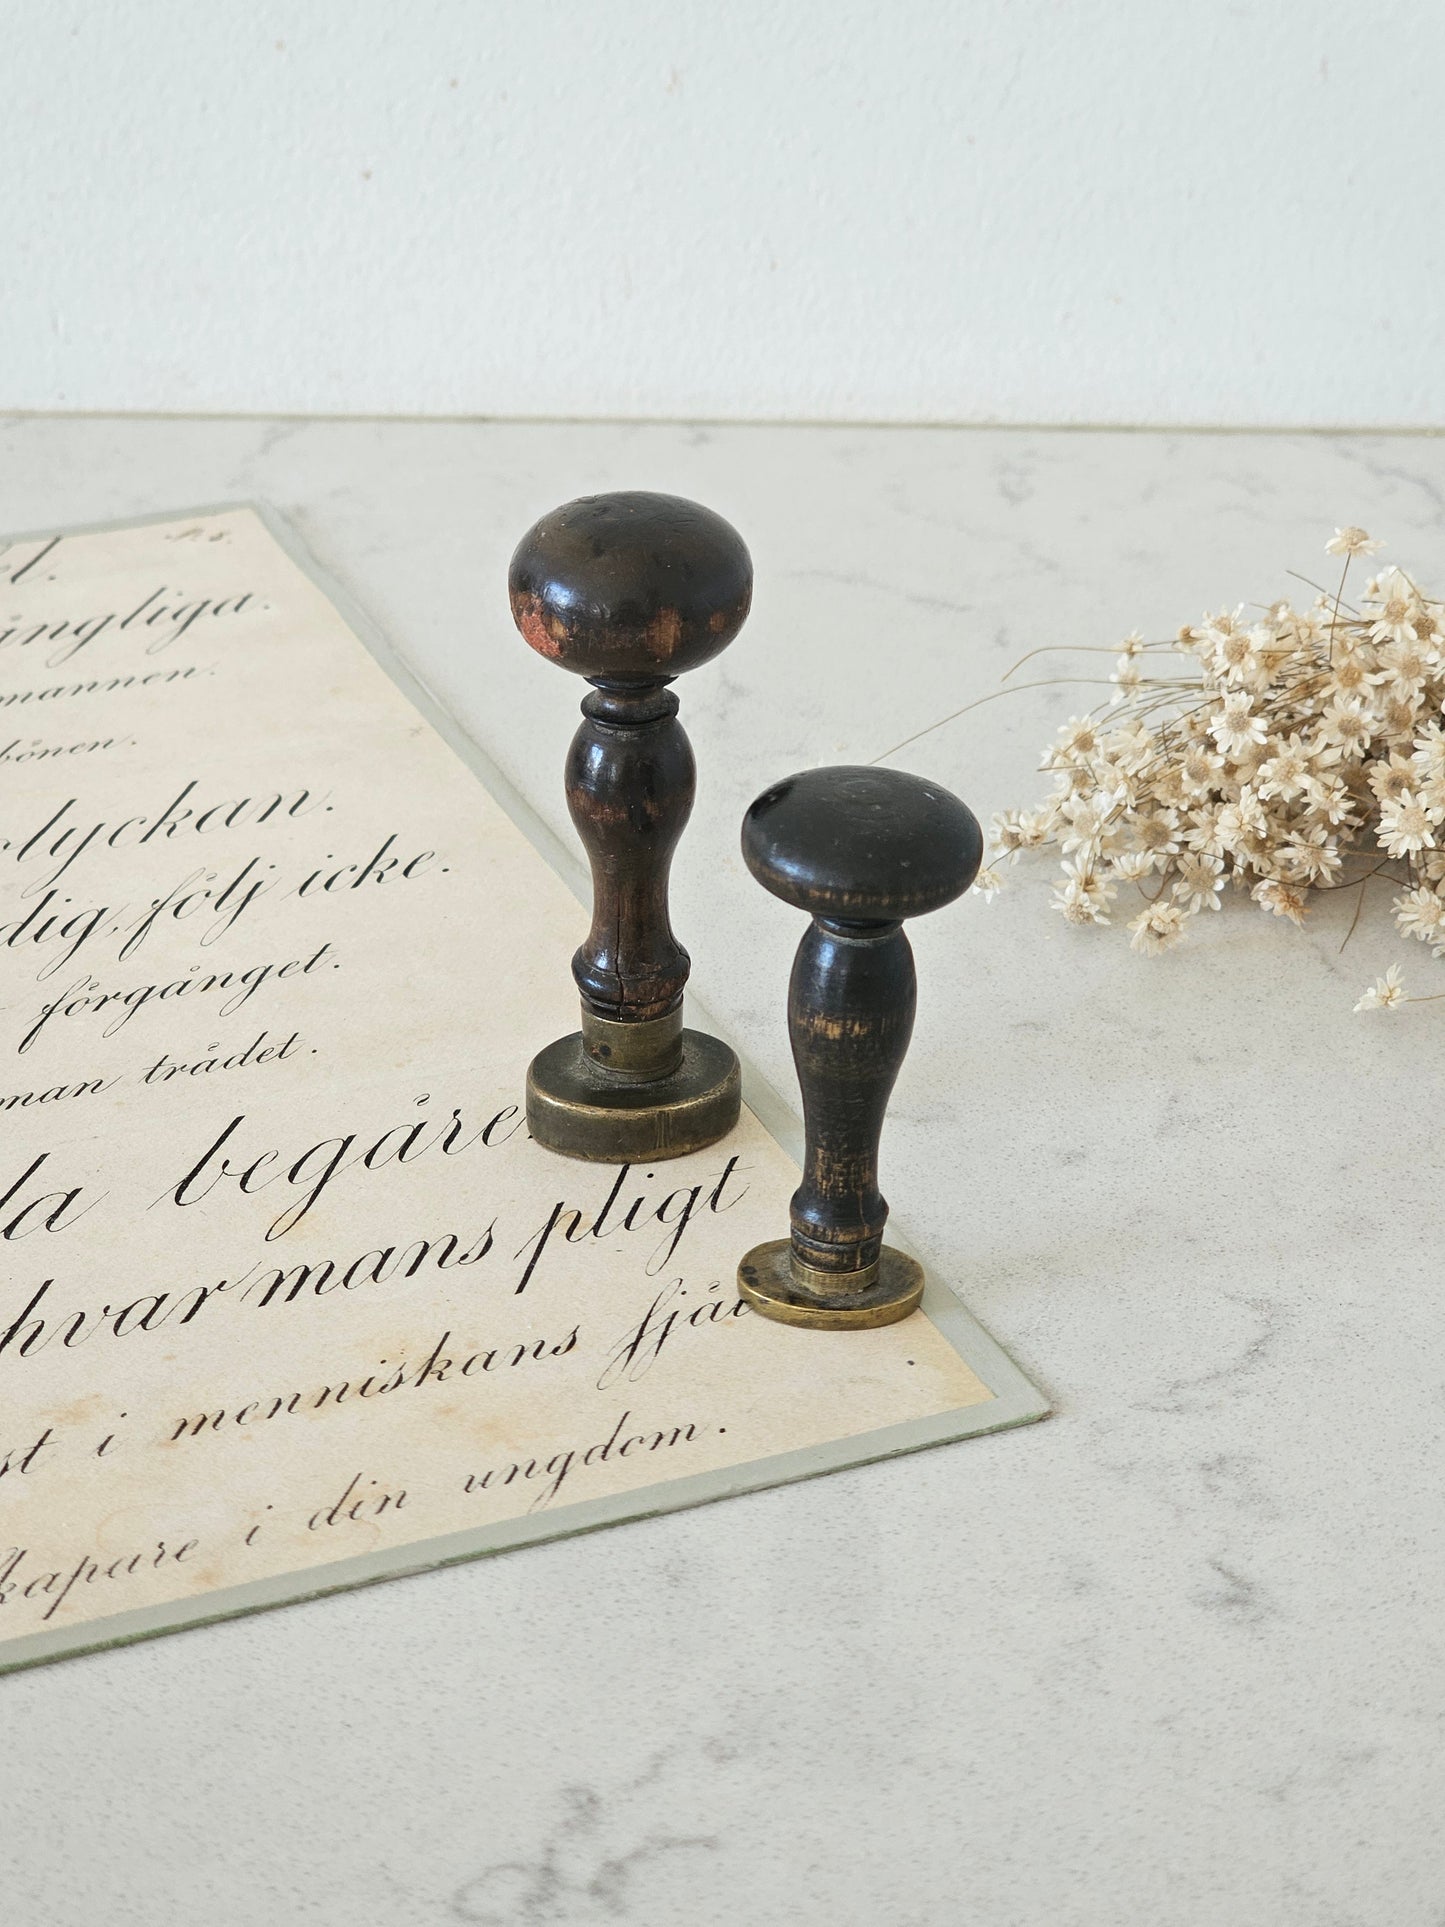 ångliga.
mannen.
bönen.
olyckan.
dig, följ icke.
förgånget.
man trådet.
la begåre
hvarmans pligt
st i menniskans själ
kapare i din ungdom.